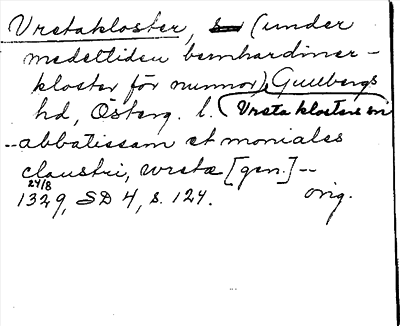 Vretakloster, (under
medeltiden bernhardiner-
kloster för nunnor), Gullbergs
hd, Österg. l. (Vreta klosters sn
--abbatissam et moniales
claustri, wretæ [gen.]--
24/8
1329, SD 4, s. 124. orig.